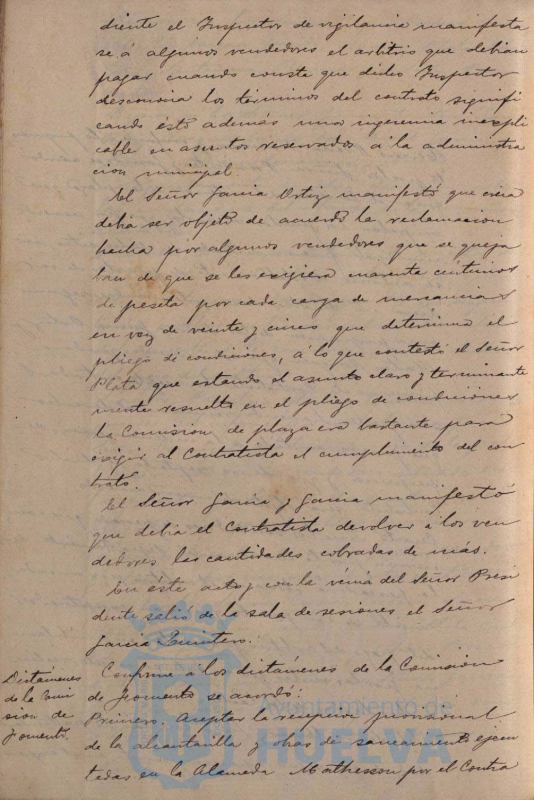 diente el Inspector de vigilancia manifesta
se á algunos vendedores el arbitrio que debian
pagar cuando conste que dicho Inspector
desconocia los términos del contrato signifi
cando ésto además una ingerencia inexpli
cable en asuntos reservados á la administra
cion municipal.
El Señor Garcia Ortiz manifestó que creia
debia ser objeto de acuerdo la reclamacion
hecha por algunos vendedores que se queja
ban de que se les exigiera cuarenta céntimos
de peseta por cada carga de mercancias
en vez de veinte y cinco que determina el
pliego de condiciones, á lo que contestó el Señor
Plata que estando el asunto claro y terminante
mente resuelto en el pliego de condiciones
la Comision de plaza era bastante para
exigir al Contratista el cumplimiento del con
trato.
El Señor Garcia y Garcia manifestó
que debia el Contratista devolver á los ven
dedores las cantidades cobradas de más.
En éste acto y con la vénia del Señor Presi
dente salió de la sala de sesiones el Señor
Garcia Quintero.
Dictámenes
de la Comi
sion de
Fomento.
Conforme a los dictámenes de la Comision
de Fomento se acordó:
Primero. Aceptar la recepcion provisional
de la alcantarilla y obras de saneamiento ejecu
tadas en la Alameda Mathesson por el Contra
Ayuntamiento de
HUELVA